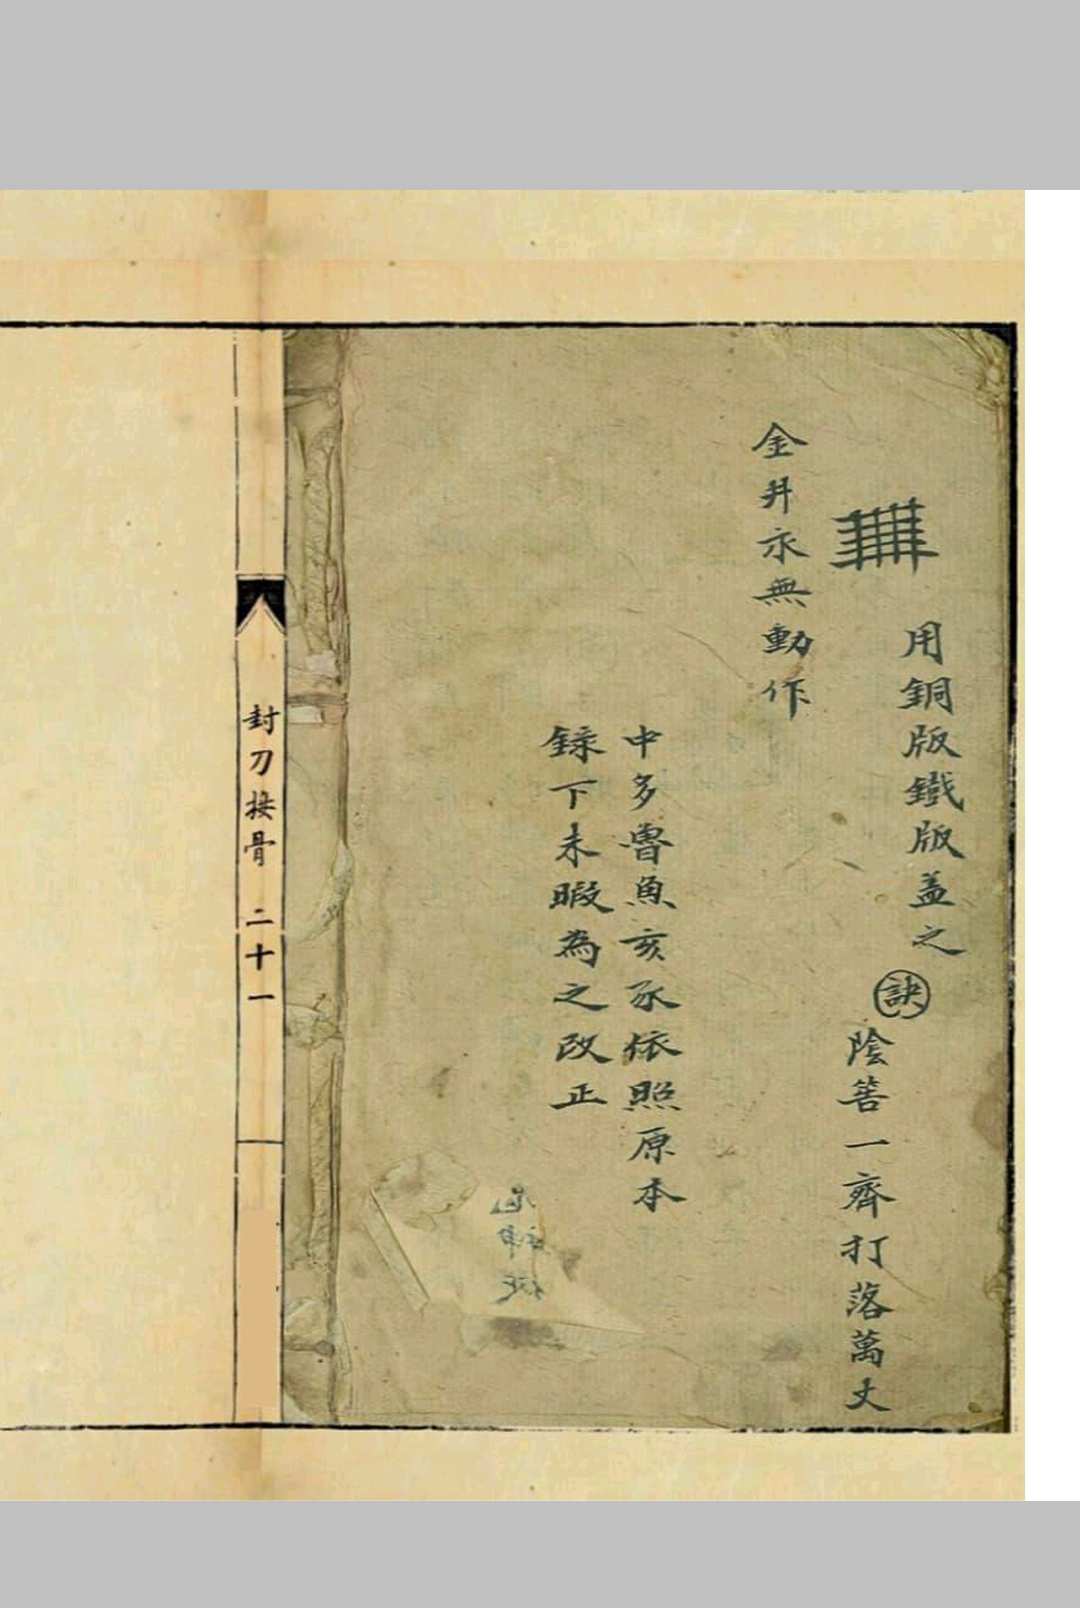 用銅版鐵版盖之
訣
陰箁一齊打落萬丈
金井永無動作
中多魯魚亥豕依照原本
錄下未暇為之改正
封刀接骨 二十一